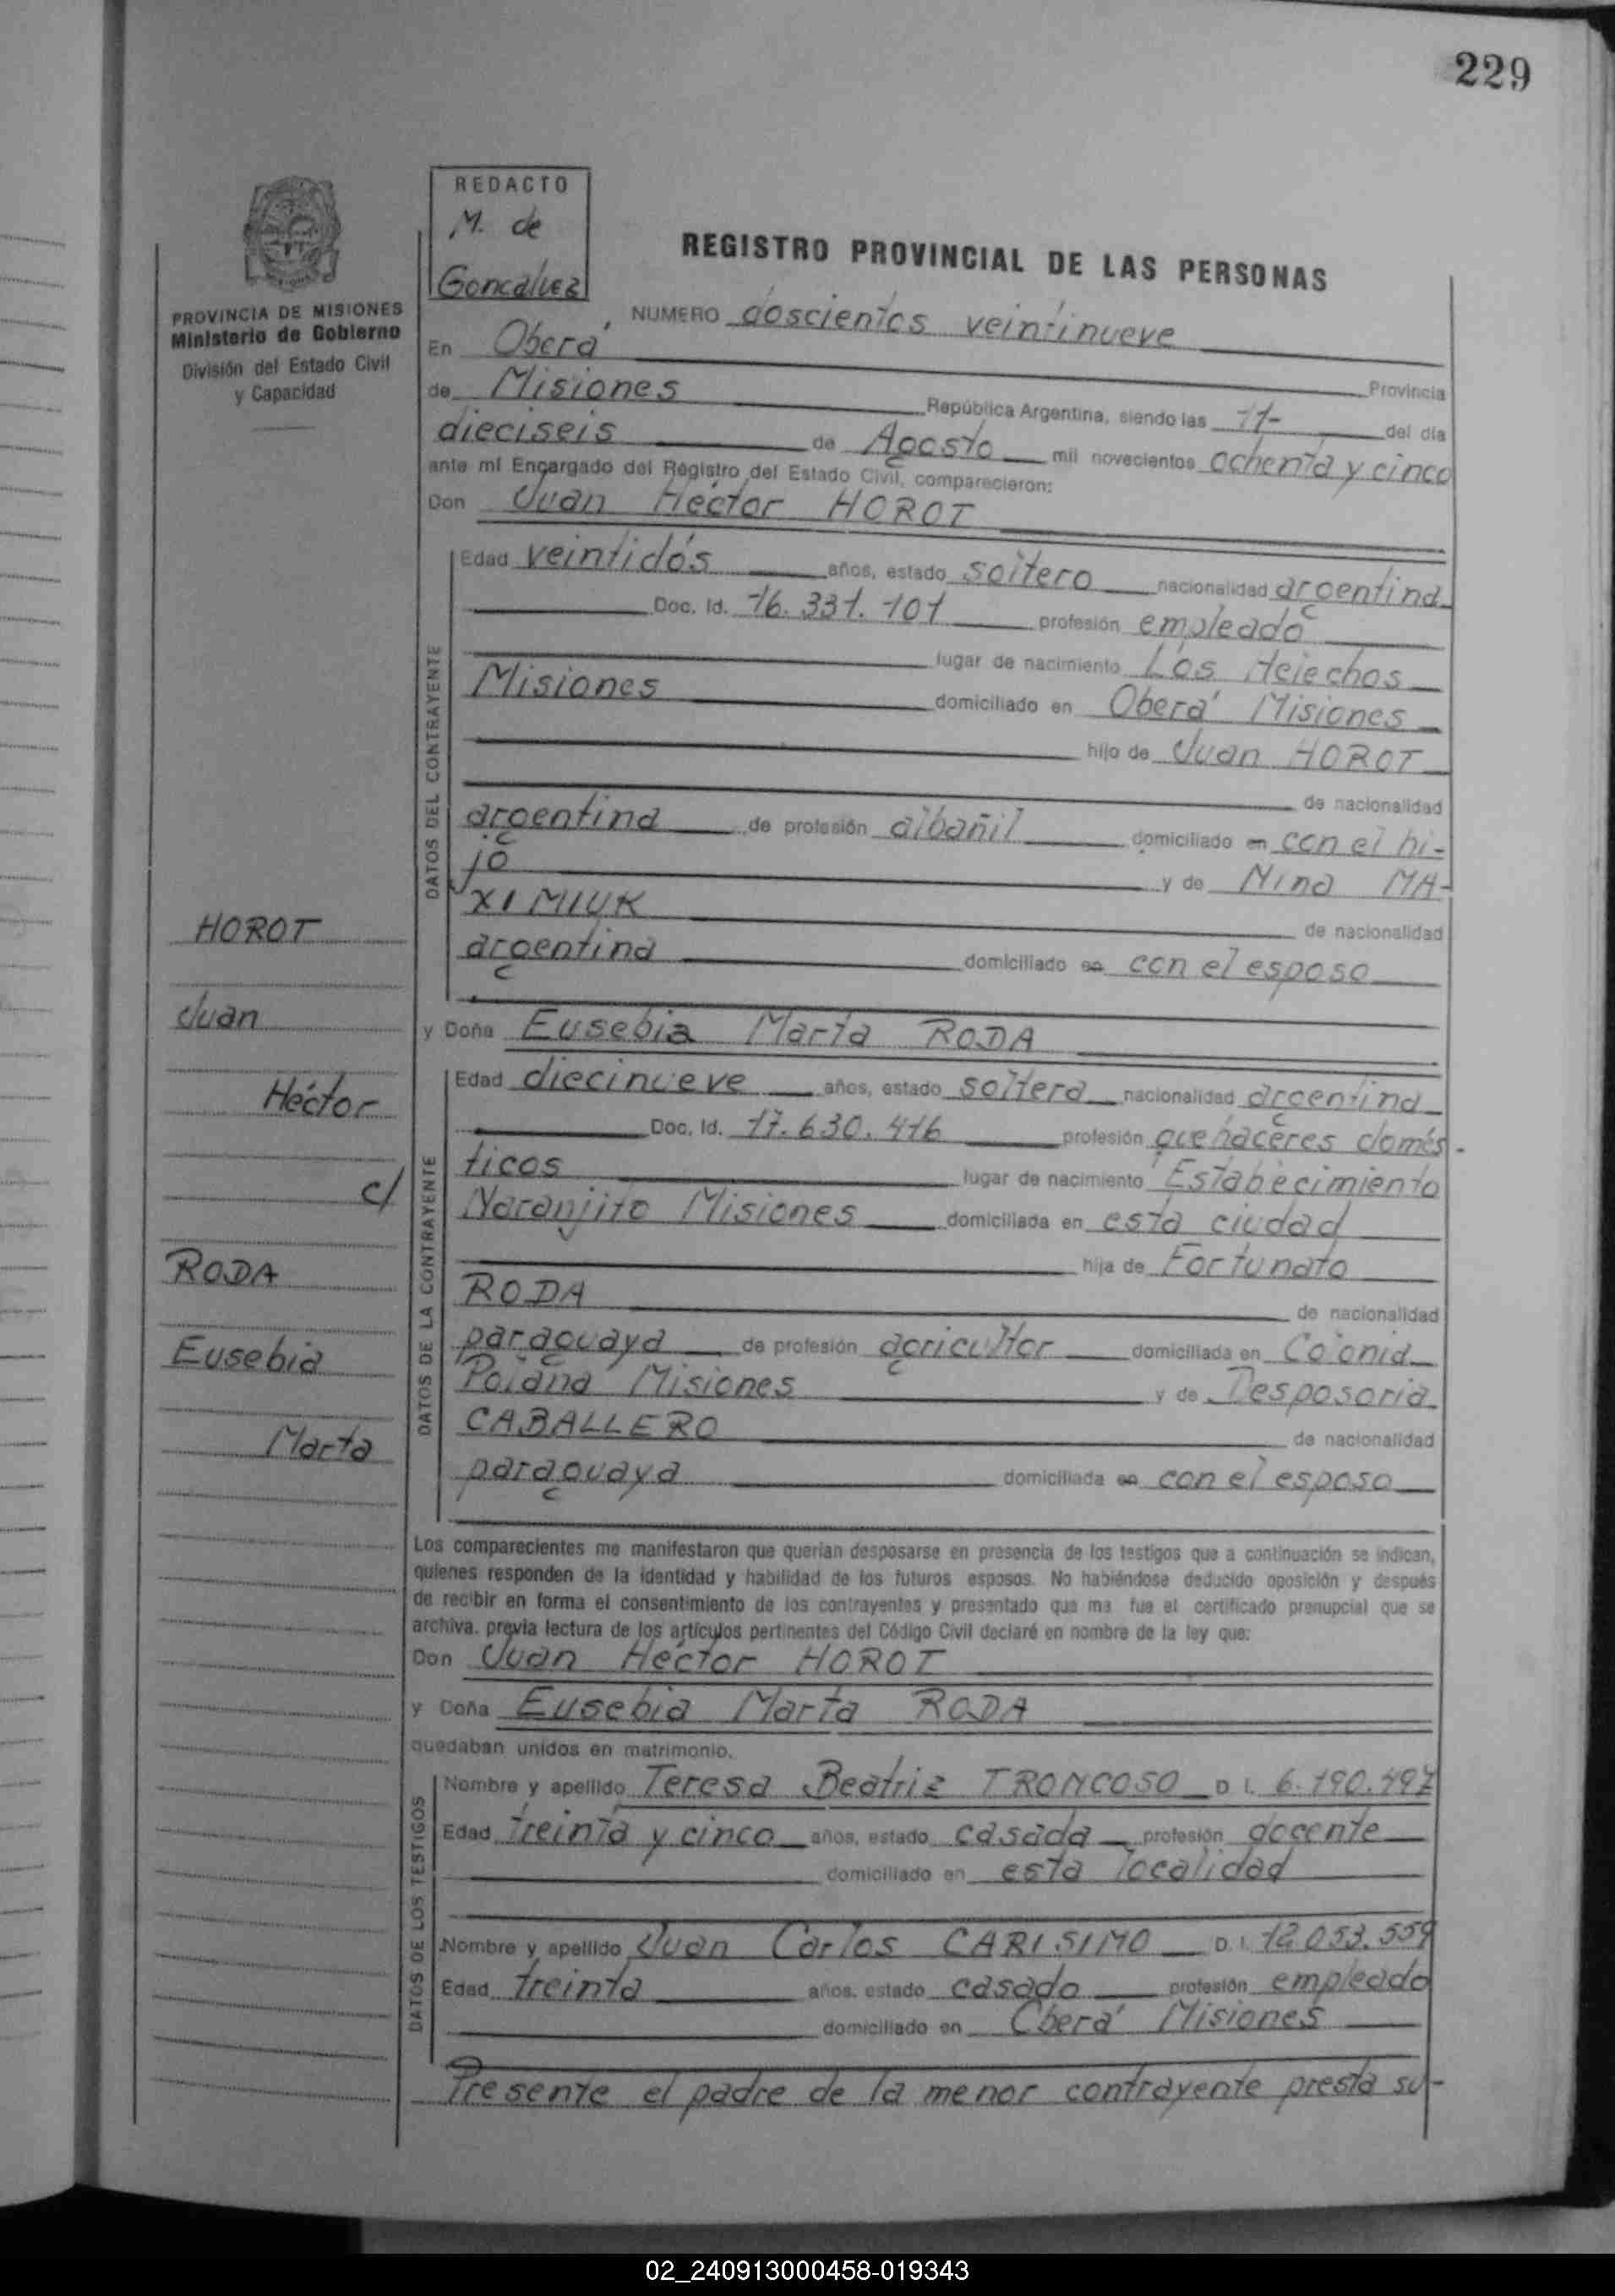 229
REDACTO
M. de
Goncalvez
REGISTRO PROVINCIAL DE LAS PERSONAS
PROVINCIA DE MISIONES
Ministerio de Gobierno
División del Estado Civil
y Capacidad
NUMERO doscientos veintinueve
En Oberá Provincia
de Misiones República Argentina, siendo las 11- del día
dieciseis de Agosto mil novecientos ochenta y cinco
ante mí Encargado del Registro del Estado Civil, comparecieron:
Don Juan Héctor HOROT
DATOS DEL CONTRAYENTE
Edad veintidós años, estado soltero nacionalidad argentina
Doc. Id. 16.331.101 profesión empleado
lugar de nacimiento Los Helechos
Misiones domiciliado en Oberá Misiones
hijo de Juan HOROT
de nacionalidad
argentina de profesión albañil domiciliado en con el hi-
jo y de Nina MA-
XIMIUK de nacionalidad
argentina domiciliado en con el esposo
y Doña Eusebia Marta RODA
DATOS DE LA CONTRAYENTE
Edad diecinueve años, estado soltera nacionalidad argentina
Doc. Id. 17.630.416 profesión quehaceres domés-
ticos lugar de nacimiento Estabecimiento
Naranjito Misiones domiciliada en esta ciudad
hija de Fortunato
RODA de nacionalidad
paraguaya de profesión agricultor domiciliada en Colonia
Polana Misiones y de Desposoria
CABALLERO de nacionalidad
paraguaya domiciliada en con el esposo
HOROT
Juan
Héctor
c/
RODA
Eusebia
Marta
Los comparecientes me manifestaron que querían desposarse en presencia de los testigos que a continuación se indican,
quienes responden de la identidad y habilidad de los futuros esposos. No habiéndose deducido oposición y después
de recibir en forma el consentimiento de los contrayentes y presentado que me fue el certificado prenupcial que se
archiva. previa lectura de los artículos pertinentes del Código Civil declaré en nombre de la ley que:
Don Juan Héctor HOROT
y Doña Eusebia Marta RODA
quedaban unidos en matrimonio.
DATOS DE LOS TESTIGOS
Nombre y apellido Teresa Beatriz TRONCOSO D I. 6.190.497
Edad treinta y cinco años, estado casada profesión docente
domiciliado en esta localidad
Nombre y apellido Juan Carlos CARISIMO D. I. 12.053.559
Edad treinta años, estado casado profesión empleado
domiciliado en Oberá Misiones
Presente el padre de la menor contrayente presta su-
02_240913000458-019343